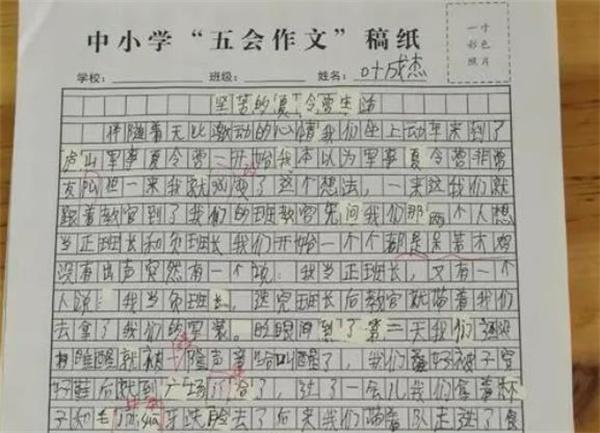 中小学“五会作文”稿纸
一寸
彩色
照片
学校： 班级： 姓名：叶成杰
坚苦的夏令营生活
伴随着无比激动的心情我们坐上动车来到了
庐山军事夏令营一开始我本以为军事夏令营非常
好玩但一来我就改变了这个想法，一来这我们就
跟着教官到了我们的班教官先问我们那两个人想
当正班长和负班长我们开始一个个都是呆若木鸡
没有出声突然有一个说：我当正班长，又有一个
人说：我当负班长，选完班长后教官就带着我们
去拿了我们的军装。时间到了第二天我们
睡醒就被 声音 叫醒了，我们 好被子穿
好鞋后就到广场 合了，过了一会儿我们拿着杯
子和毛 牙 脸去了后来我们 着队走进了食